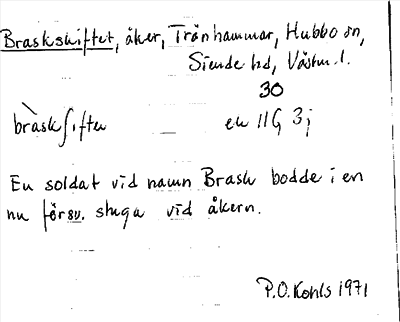 Braskskiftet, åker, Trönhammar, Hubbo sn,
Siende hd, Västm. l.
30
bràskʃiftɘ ek 11G 3j
En soldat vid namn Brask bodde i en
nu försv. stuga vid åkern.
P.O. Kohls 1971